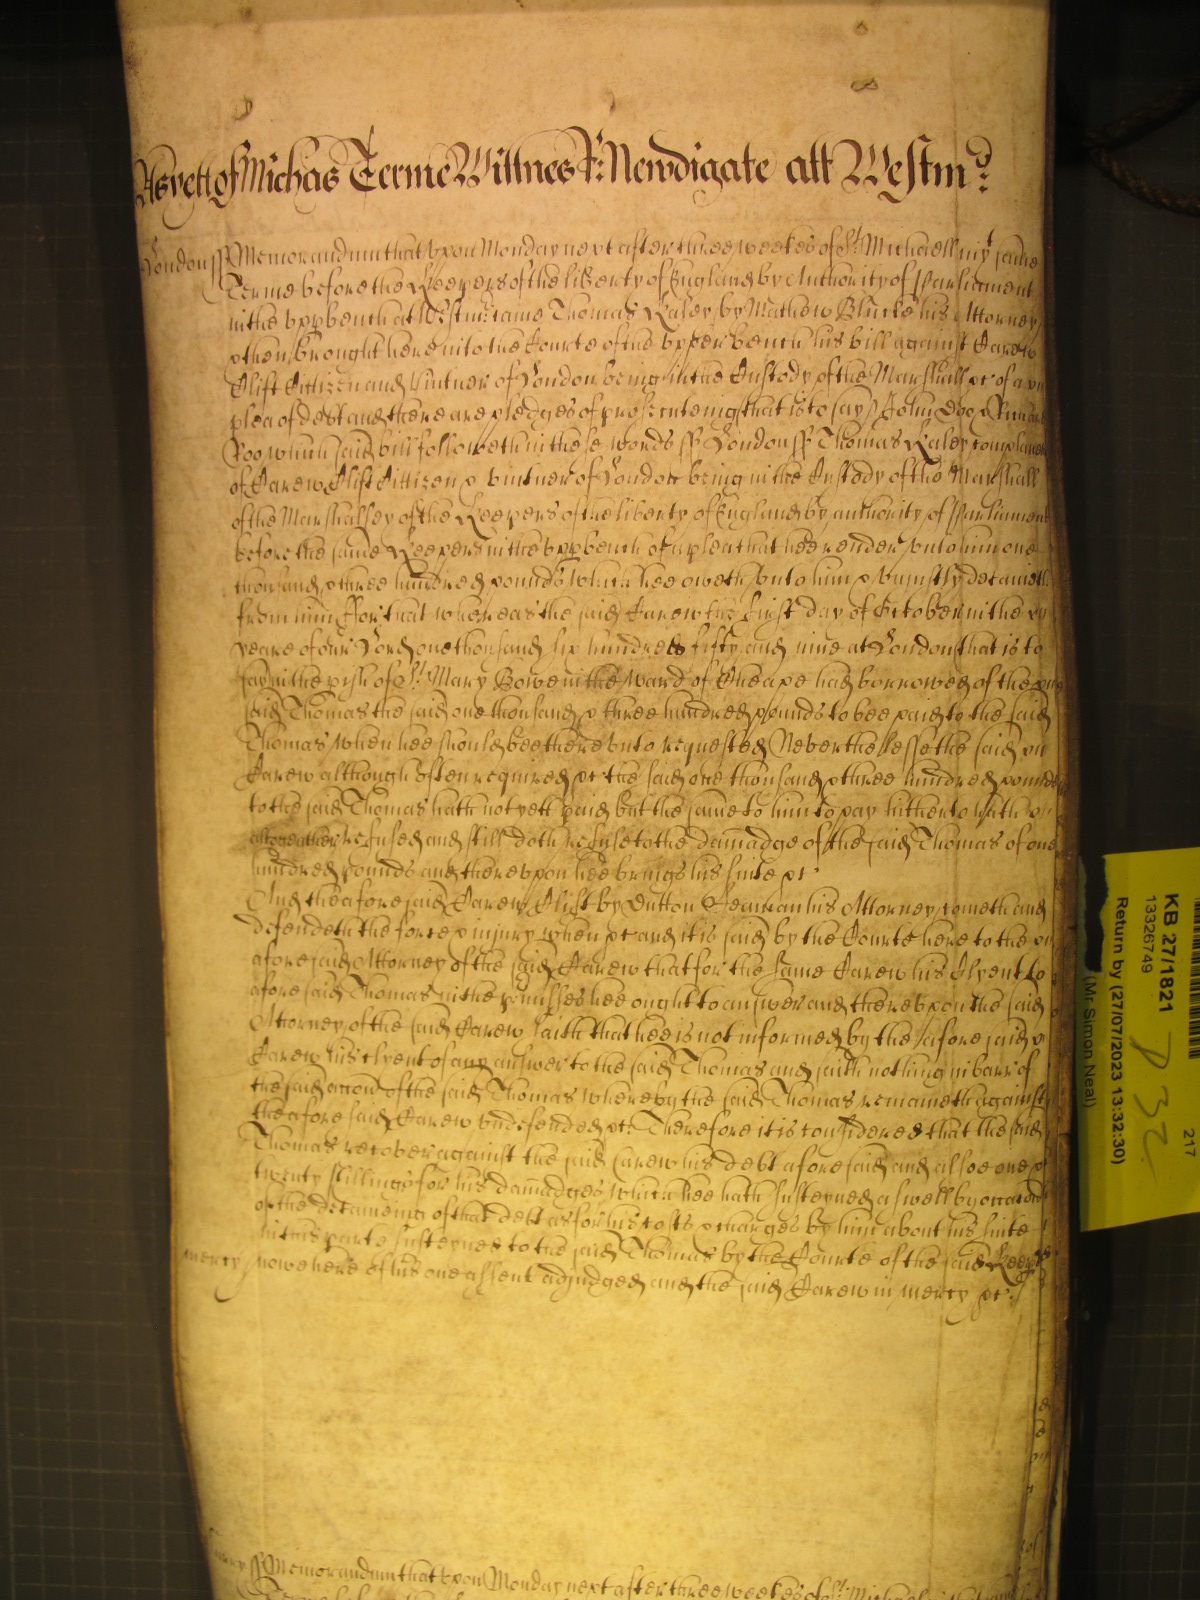 As yett of Michas Terme Wittnes R: Newdigate att Westmr:
London ss Memorandum that vpon Monday next after three weekes of St: Michaell in ys same
Terme before the Keepers of the liberty of England by Authority of Parliament
in the vpp bench at Westmr: came Thomas Kaley by Mathew Blucke his Attorney
& then brought here into the Courte of the vpper bench his bill against Carew
Clift Cittizen and Vintner of London being in the Custody of the Marshall &c of a
plea of debt and there are pledges of prosecuteing that is to say John Doo & Richard
Roo which said bill followeth in these words ss London ss Thomas Kaley complaineth
of Carew Clift Cittizen & vintner of London being in the Custody of the Marshall
of the Marshalsey of the Keepers of the liberty of England by authority of Parliament
before the same Keepers in the vpp bench of a plea that hee render vnto him one
thousand & three hundred pounds which hee oweth vnto him & vniustly detaineth
from him ffor that whereas the said Carew the first day of October in the
yeare of our Lord one thousand six hundred fifty and nine at London that is to
say in the pish of St: Mary Bowe in the Ward of Cheape had borrowed of the
said Thomas the said one thousand & three hundred pounds to bee paid to the said
Thomas when hee should bee therevnto requested Neverthelesse the said
Carew although often required &c the said one thousand & three hundred pounds
to the said Thomas hath not yett paid but the same to him to pay hitherto hath
altogether refused and still doth refuse to the damadge of the said Thomas of one
hundred pounds and therevpon hee brings his suite &c
And the aforesaid Carew Clift by Dutton Seaman his Attorney cometh and
defendeth the force & injury when &c and it is said by the Courte here to the
aforesaid Attorney of the said Carew that for the same Carew his Clyent to
aforesaid Thomas in the pmisses hee ought to answer and therevpon the said
Attorney of the said Carew saith that hee is not informed by the aforesaid
Carew his clyent of any answer to the said Thomas and saith nothing in barr of
the said accon of the said Thomas whereby the said Thomas remaineth against
the aforesaid Carew vndefended &c: Therefore it is considered that the said
Thomas recover against the said Carew his debt aforesaid and alsoe one &
twenty shillings for his damadges which hee hath susteyned aswell by occacon
of the detaineing of that debt as for his costs & charges by him about his suite
in this parte susteyned to the said Thomas by the Courte of the said Keepers
mercy nowe here of his one assent adjudged and the said Carew in mercy &c:
ss Memorandum that vpon Monday next after three weekes of St: Michael in the same
KB 27/1821
13326749
2117
P 32
Return by (27/07/2023 13:32:30)
(Mr Simon Neal)